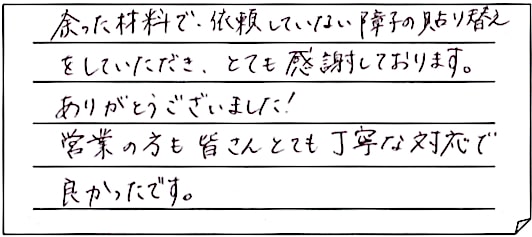 余った材料で、依頼していない障子の貼り替え
をしていただき、とても感謝しております。
ありがとうございました!
営業の方も皆さんとても丁寧な対応で
良かったです。